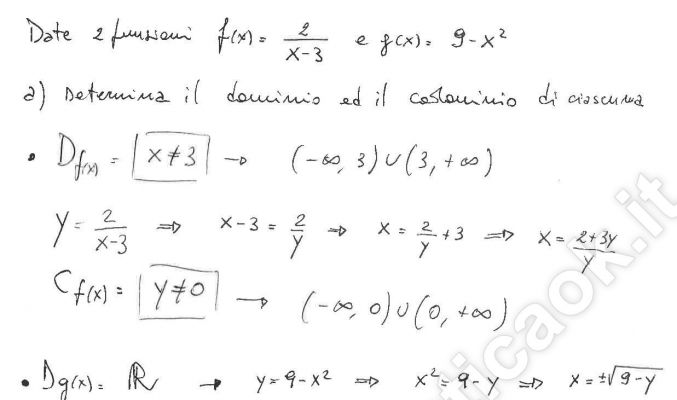 Date 2 funzioni f(x) = 2/(x-3) e g(x) = 9-x²
a) Determina il dominio ed il codominio di ciascuna
• D_f(x) = x≠3 → (-∞, 3) ∪ (3, +∞)
y = 2/(x-3) ⇒ x-3 = 2/y ⇒ x = 2/y + 3 ⇒ x = (2+3y)/y
C_f(x) = y≠0 → (-∞, 0) ∪ (0, +∞)
• D_g(x) = ℝ → y = 9-x² ⇒ x² = 9-y ⇒ x = ±√(9-y)
ticaok.it